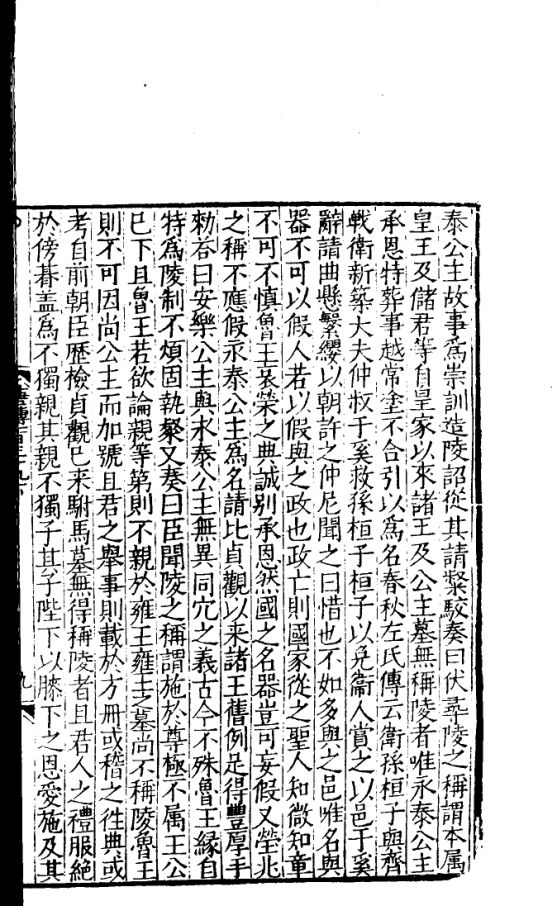 泰公主故事爲崇訓造陵詔從其請粲駮奏曰伏尋陵之稱謂本屬
皇王及儲君等自皇家以來諸王及公主墓無稱陵者唯永泰公主
承恩特葬事越常塗不合引以爲名春秋左氏傳云衛孫桓子與齊
戰衛新築大夫仲叔于奚救孫桓子桓子以免衞人賞之以邑于奚
辭請曲懸繁纓以朝許之仲尼聞之曰惜也不如多與之邑唯名與
器不可以假人若以假與之政也政亡則國家從之聖人知微知章
不可不慎魯王哀榮之典誠别承恩然國之名器豈可妄假又塋兆
之稱不應假永泰公主爲名請比貞觀以來諸王舊例足得豐厚手
勑荅曰安樂公主與永泰公主無異同穴之義古今不殊魯王緣自
特爲陵制不煩固執粲又奏曰臣聞陵之稱謂施於尊極不属王公
巳下且魯王若欲論親等第則不親於雍王雍王之墓尚不稱陵魯王
則不可因尚公主而加號且君之舉事則載於方冊或稽之徃典或
考自前朝臣歷檢貞觀巳來駙馬墓無得稱陵者且君人之禮服絶
於傍朞盖爲不獨親其親不獨子其子陛下以膝下之恩愛施及其